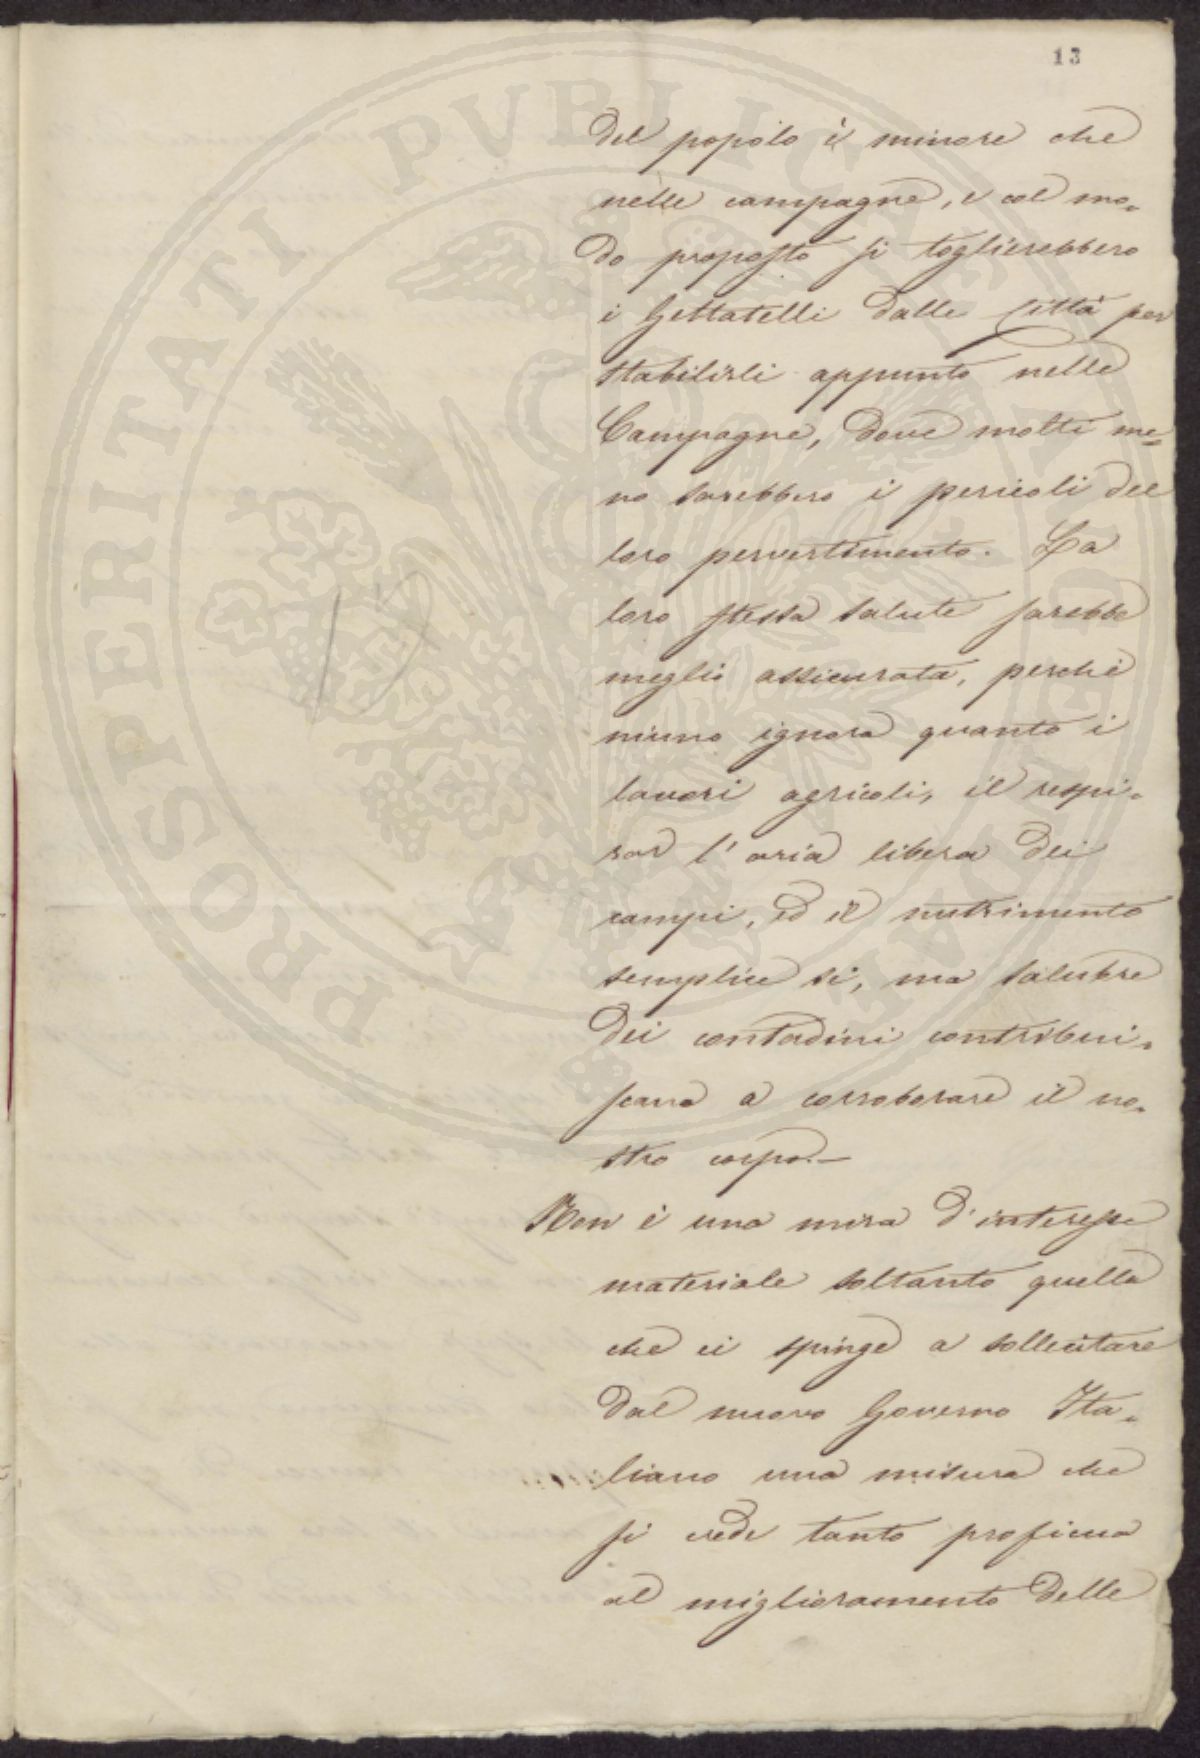 13
del popolo è minore che
nelle campagne, e col mo=
do proposto si toglierebbero
i Gettatelli dalle Città per
stabilirli appunto nelle
Campagne, dove molti me=
no sarebbero i pericoli del
loro pervertimento. La
loro stessa salute sarebbe
meglio assicurata, perchè
niuno ignora quanto i
lavori agricoli, il respi=
rar l'aria libera dei
campi, ed il nutrimento
semplice sì, ma salubre
dei contadini contribui=
scano a corroborare il no=
stro corpo.—
Non è una mira d'interesse
materiale soltanto quella
che ci spinge a sollecitare
dal nuovo Governo Ita=
liano una misura che
si crede tanto proficua
al miglioramento delle
13
PROSPERITATI PUBLICAE AUGENDAE